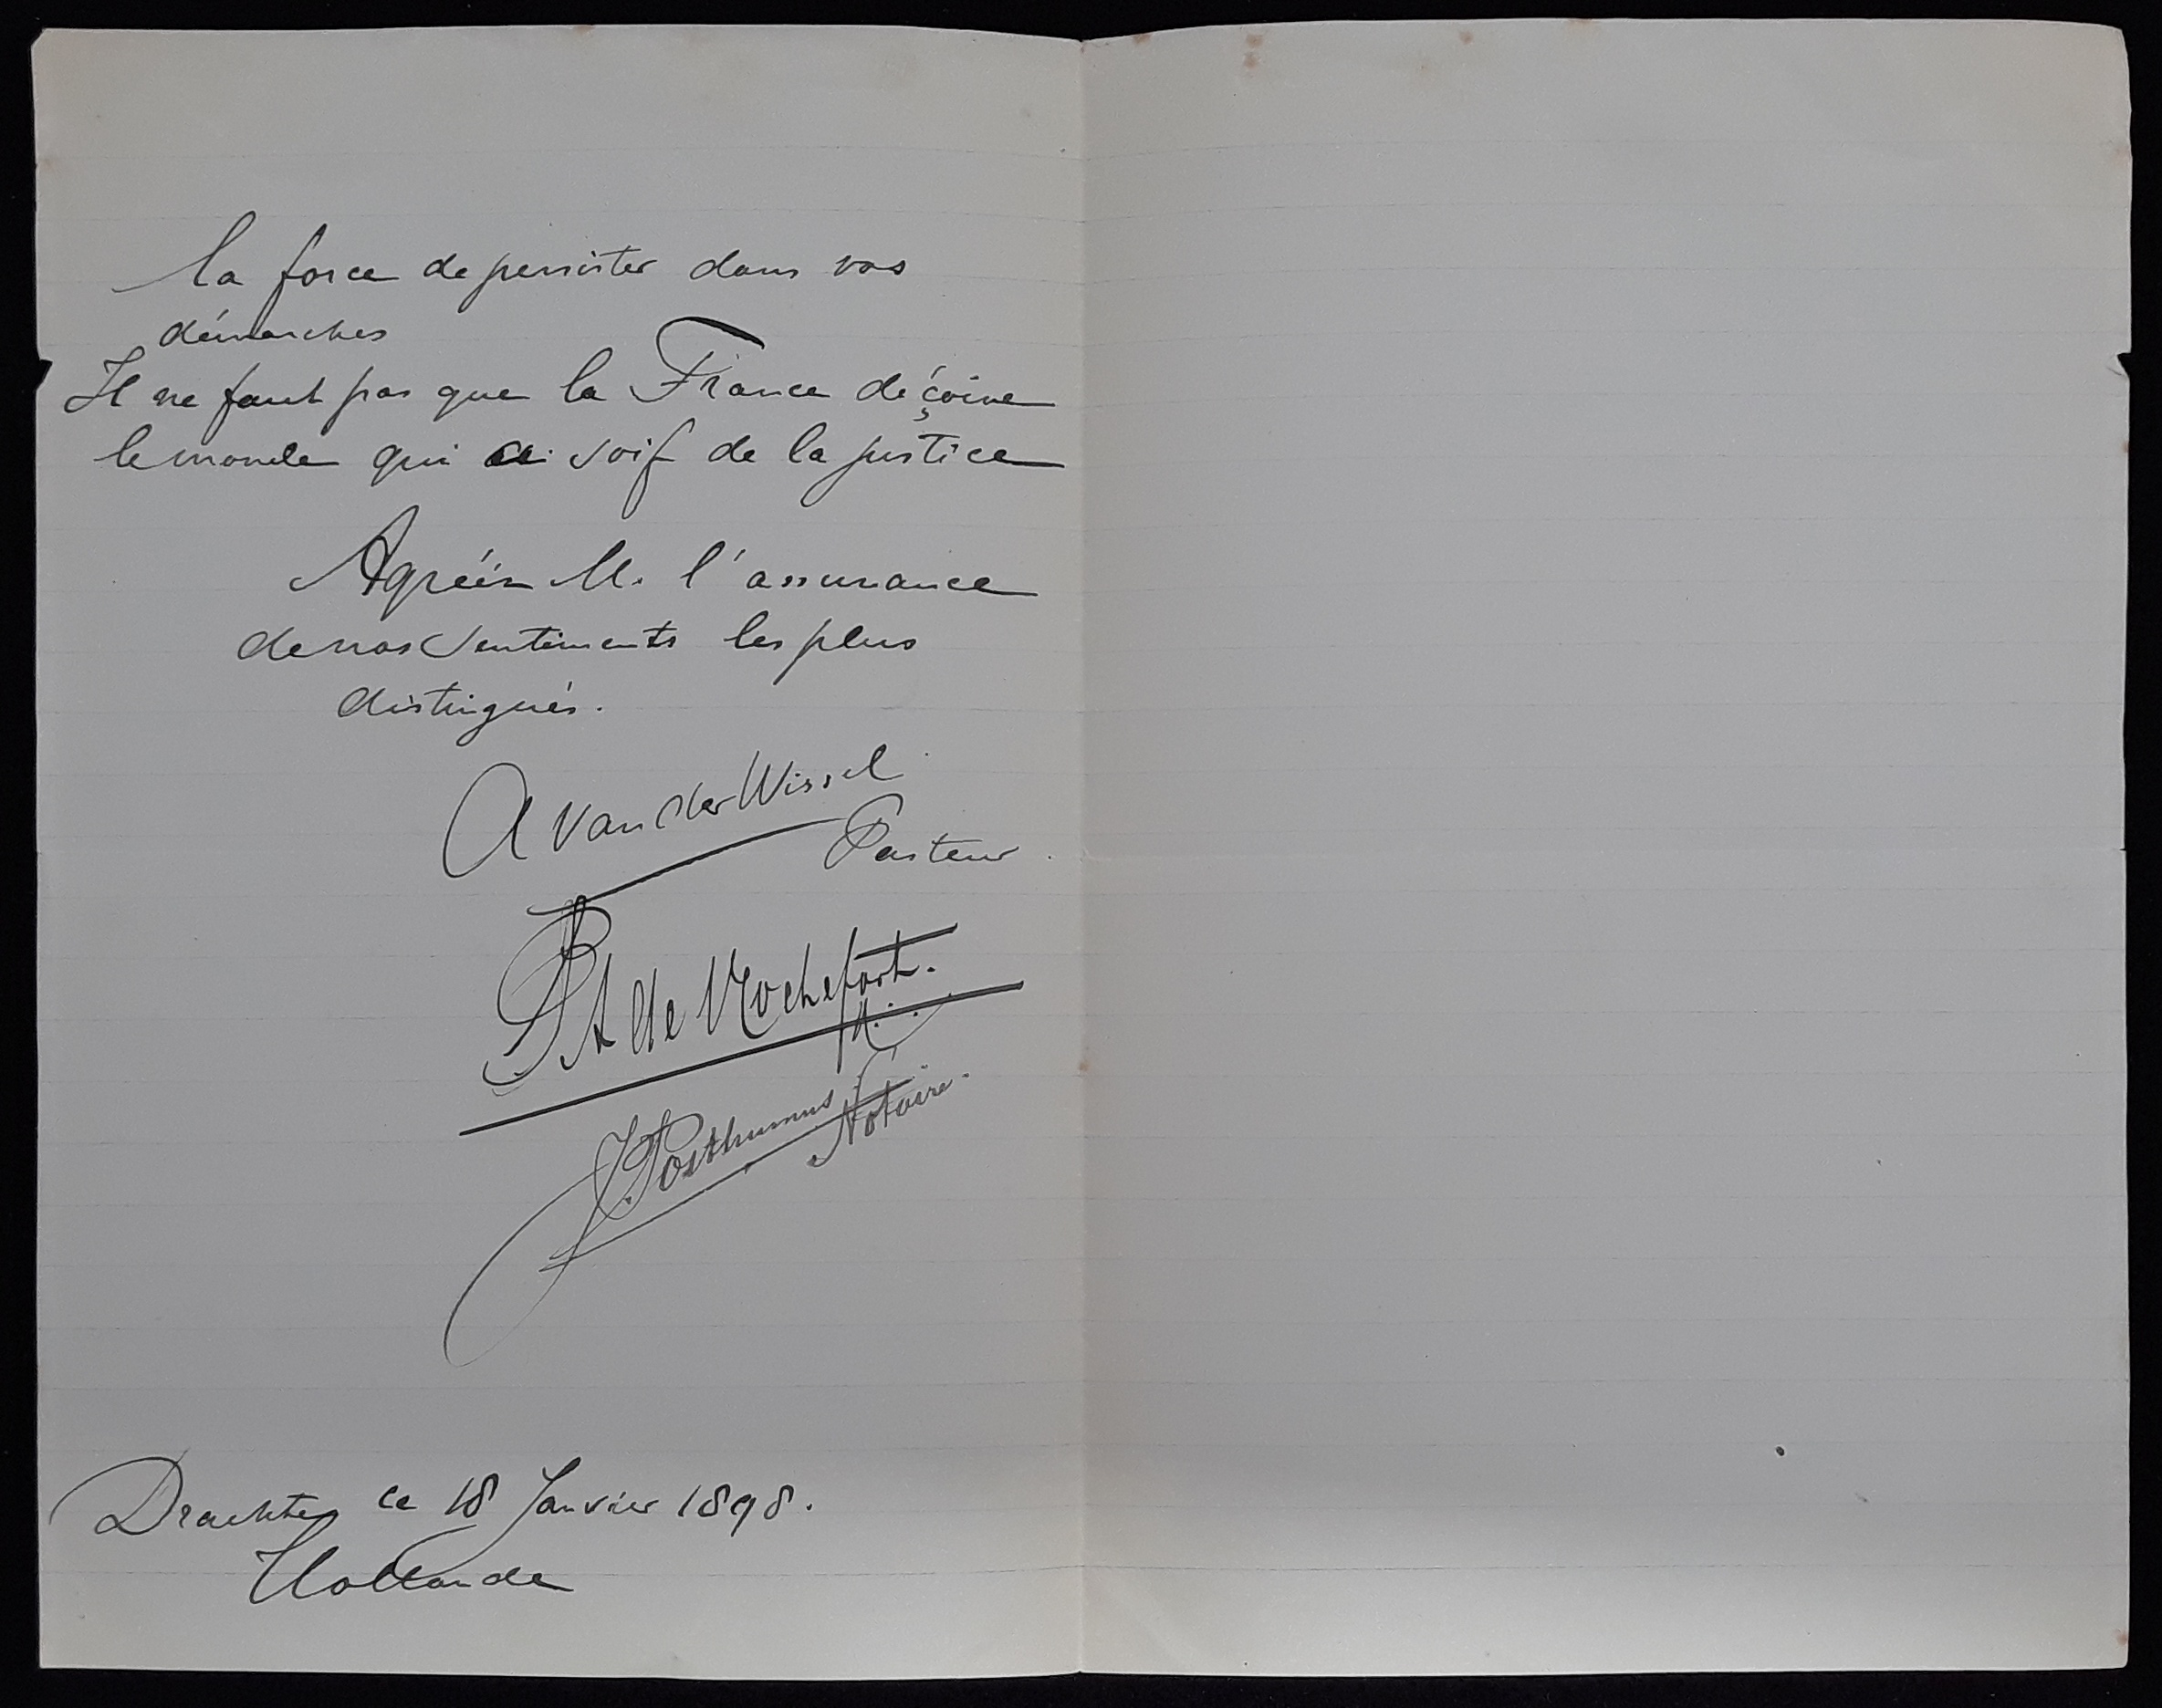 la force de persister dans vos
démarches
Il ne faut pas que la France déçoive
le monde qui a soif de la justice
Agréez M. l'assurance
de nos sentiments les plus
distingués.
A van der Wissel
Pasteur.
A de Rochefort.
J Posthumus
Notaire.
Drachten ce 18 Janvier 1898.
Hollande